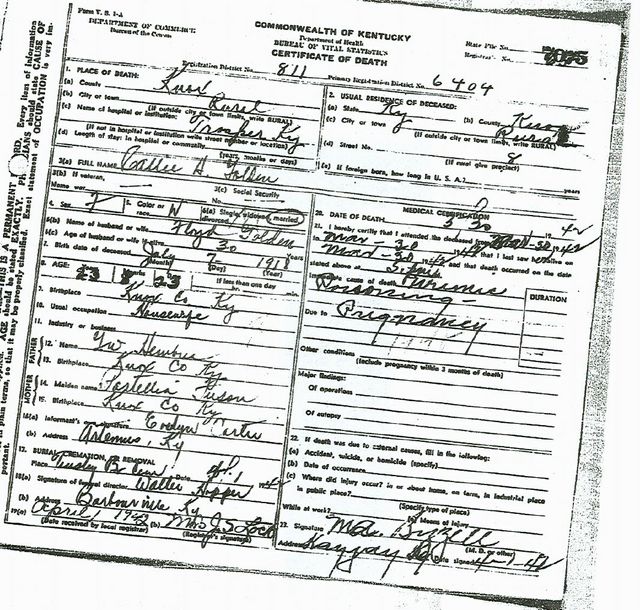 Form V. S. 1-A
DEPARTMENT OF COMMERCE
Bureau of the Census
COMMONWEALTH OF KENTUCKY
Department of Health
BUREAU OF VITAL STATISTICS
CERTIFICATE OF DEATH
State File No.
Registrar's No.
Registration District No. 811
Primary Registration District No. 6404
1. PLACE OF DEATH:
(a) County Knox
(b) City or town Rural
(If outside city or town limits, write RURAL)
(c) Name of hospital or institution: Trosper Ky
(If not in hospital or institution write street number or location)
(d) Length of stay: In hospital or community
(years, months or days)
2. USUAL RESIDENCE OF DECEASED:
(a) State Ky (b) County Knox
(c) City or town Rural
(If outside city or town limits, write RURAL)
(d) Street No. 8
(If rural give precinct)
(e) If foreign born, how long in U. S. A.? years
3(a) FULL NAME Callie Golden
3(b) If veteran,
Name war
3(c) Social Security
No.
4. Sex F 5. Color or race W 6(a) Single, widowed, married, divorced
6(b) Name of husband or wife Floyd Golden
6(c) Age of husband or wife 30 Years
7. Birth date of deceased July 7 1918
8. AGE: 23 8 23
If less than one day
9. Birthplace Knox Co Ky
10. Usual occupation Housewife
11. Industry or business
FATHER
12. Name
13. Birthplace Knox Co Ky
MOTHER
14. Maiden name
15. Birthplace Knox Co Ky
16(a) Informant's signature Evelyn Carter
(b) Address Artemus, Ky
17. BURIAL, CREMATION, REMOVAL
Place Date Apr. 1 1942
18(a) Signature of funeral director Walter Hopper
(b) Address Barbourville Ky
19(a) April 1942 (b) Mrs J. S. Lock
(Date received by local registrar) (Registrar's signature)
MEDICAL CERTIFICATION
20. DATE OF DEATH 3 30 1942
21. I hereby certify that I attended the deceased from Mar-30, 42
to Mar-30, 42 that I last saw her alive on
Mar-30, 42 and that death occurred on the date
stated above at
Immediate cause of death Uremic
Poisoning-
DURATION
Due to Pregnancy
Other conditions
(Include pregnancy within 3 months of death)
Major findings:
Of operations
Of autopsy
22. If death was due to external causes, fill in the following:
(a) Accident, suicide, or homicide (specify)
(b) Date of occurrence
(c) Where did injury occur? in or about home, on farm, in industrial place
in public place?
(Specify type of place)
While at work? Means of injury
23. Signature M.A. Bizzell
(M. D. or other)
Address Kayjay Ky Date signed 4-1-42